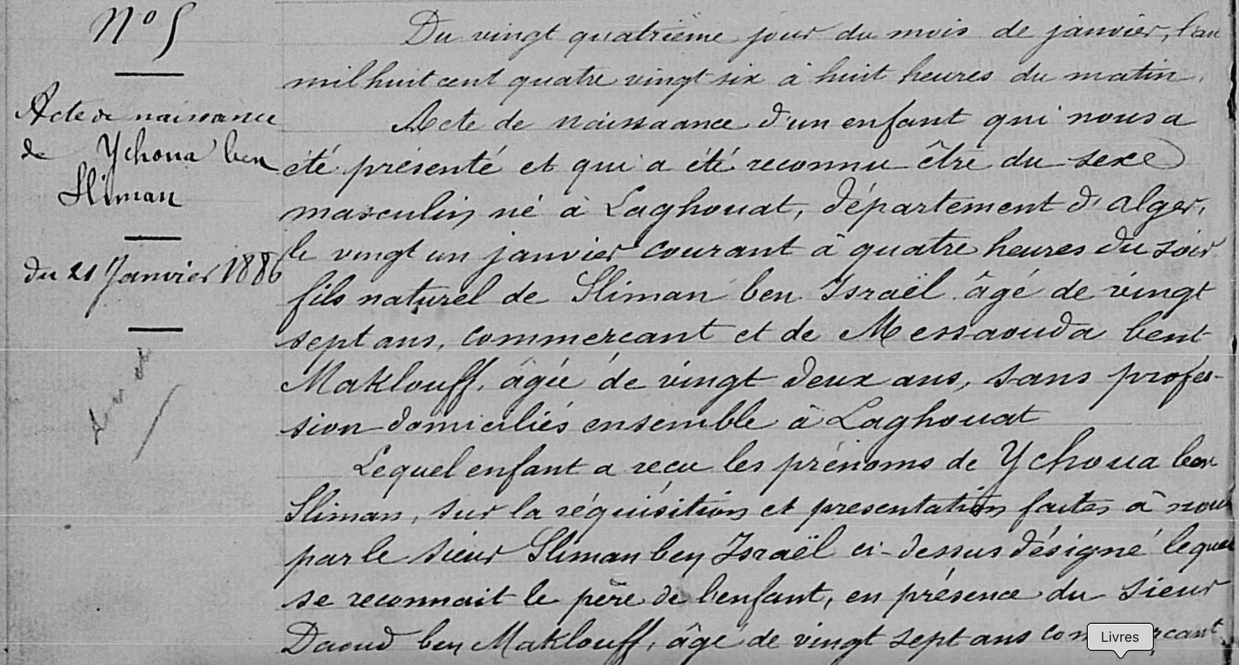 N° 5
Acte de naissance
de Ychoua ben
Sliman
du 21 Janvier 1886
Du vingt quatrième jour du mois de janvier, l'an
mil huit cent quatre vingt six à huit heures du matin.
Acte de naissaance d'un enfant qui nous a
été présenté et qui a été reconnu être du sexe
masculin, né à Laghouat, département d'alger,
le vingt un janvier courant à quatre heures du soir
fils naturel de Sliman ben Israël âgé de vingt
sept ans, commercant et de Messaouda bent
Maklouff, âgée de vingt deux ans, sans profes-
sion domiciliés ensemble à Laghouat
Lequel enfant a recu les prénoms de Ychoua ben
Sliman, sur la réquisition et presentation faites à nous
par le sieur Sliman ben Israël ci-dessus désigné lequel
se reconnait le père de l'enfant, en présence du sieur
Daoud ben Maklouff, âgé de vingt sept ans
Livres